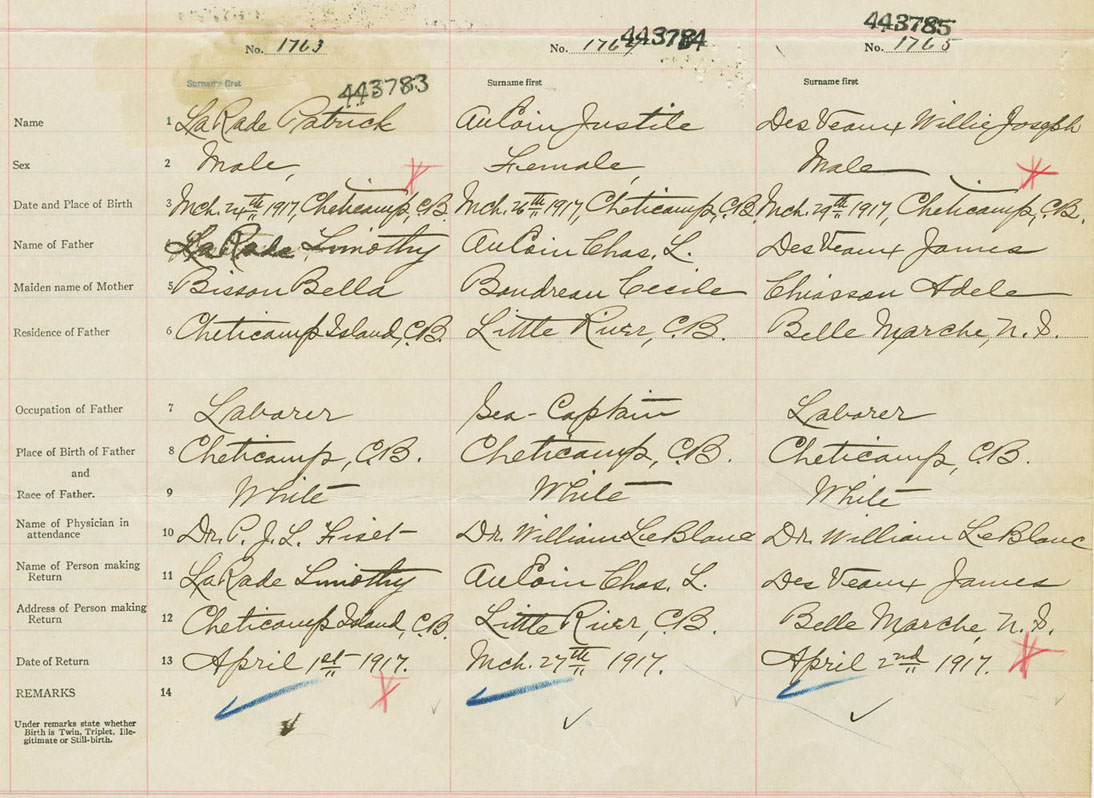 443785
No. 1763 No. 1764 443784 No. 1765
Surname first Surname first Surname first
443783
Name 1 LaRade Patrick AuCoin Justile DesVeaux Willie Joseph
Sex 2 Male, Female, Male
Date and Place of Birth 3 Mch. 24th 1917, Cheticamp, C.B. Mch. 26th 1917, Cheticamp, C.B. Mch. 29th 1917, Cheticamp, C.B.
Name of Father 4 LaRade Timothy AuCoin Chas. L. DesVeaux James
Maiden name of Mother 5 Bisson Bella Boudreau Cecile Chiasson Adele
Residence of Father 6 Cheticamp Island, C.B. Little River, C.B. Belle Marche, N.S.
Occupation of Father 7 Laborer Sea-Captain Laborer
Place of Birth of Father 8 Cheticamp, C.B. Cheticamp, C.B. Cheticamp, C.B.
and
Race of Father. 9 White White White
Name of Physician in
attendance 10 Dr. P. J. L. Fiset Dr. William LeBlanc Dr. William LeBlanc
Name of Person making
Return 11 LaRade Timothy AuCoin Chas. L. DesVeaux James
Address of Person making
Return 12 Cheticamp Island, C.B. Little River, C.B. Belle Marche, N.S.
Date of Return 13 April 1st 1917. Mch. 27th 1917. April 2nd 1917.
REMARKS 14
Under remarks state whether
Birth is Twin, Triplet, Ille-
gitimate or Still-birth.